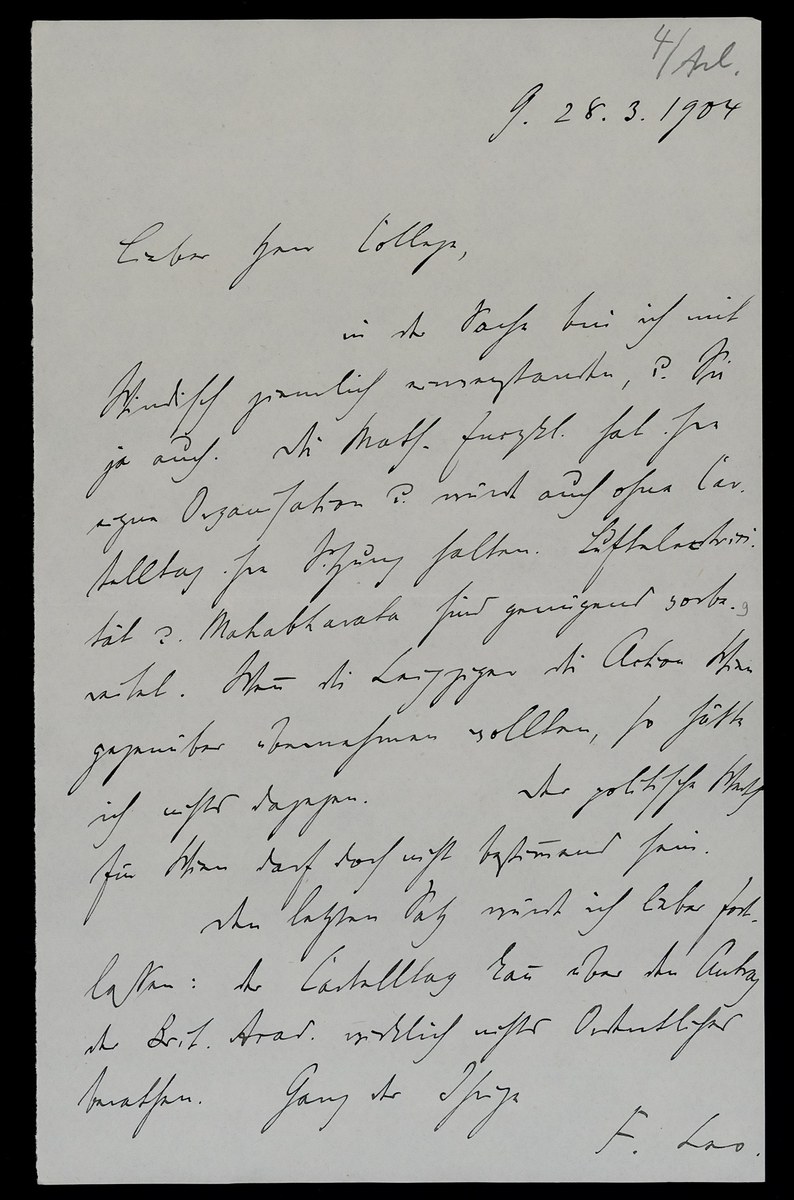 4/Arl.
G. 28. 3. 1904
Lieber Herr College,
in der Sache bin ich mit
Windisch ziemlich einverstanden, u. Sie
ja auch. Die Math. Encykl. hat ihre
eigne Organisation u. würde auch ohne Car-
telltag ihre Sitzung halten. Luftelectrici-
tät u. Mahabharata sind genügend vorbe-
reitet. Wenn̄ die Leipziger die Action Wien
gegenüber übernehmen wollten, so hätte
ich nichts dagegen. Der politische Werth
für Wien darf doch nicht bestim̄end sein.
Den letzten Satz würde ich lieber fort-
lassen: der Cartelltag kan̄ über den Antrag
der Brit. Acad. wirklich nichts Ordentliches
berathen. Ganz der Ihrige
F. Leo.